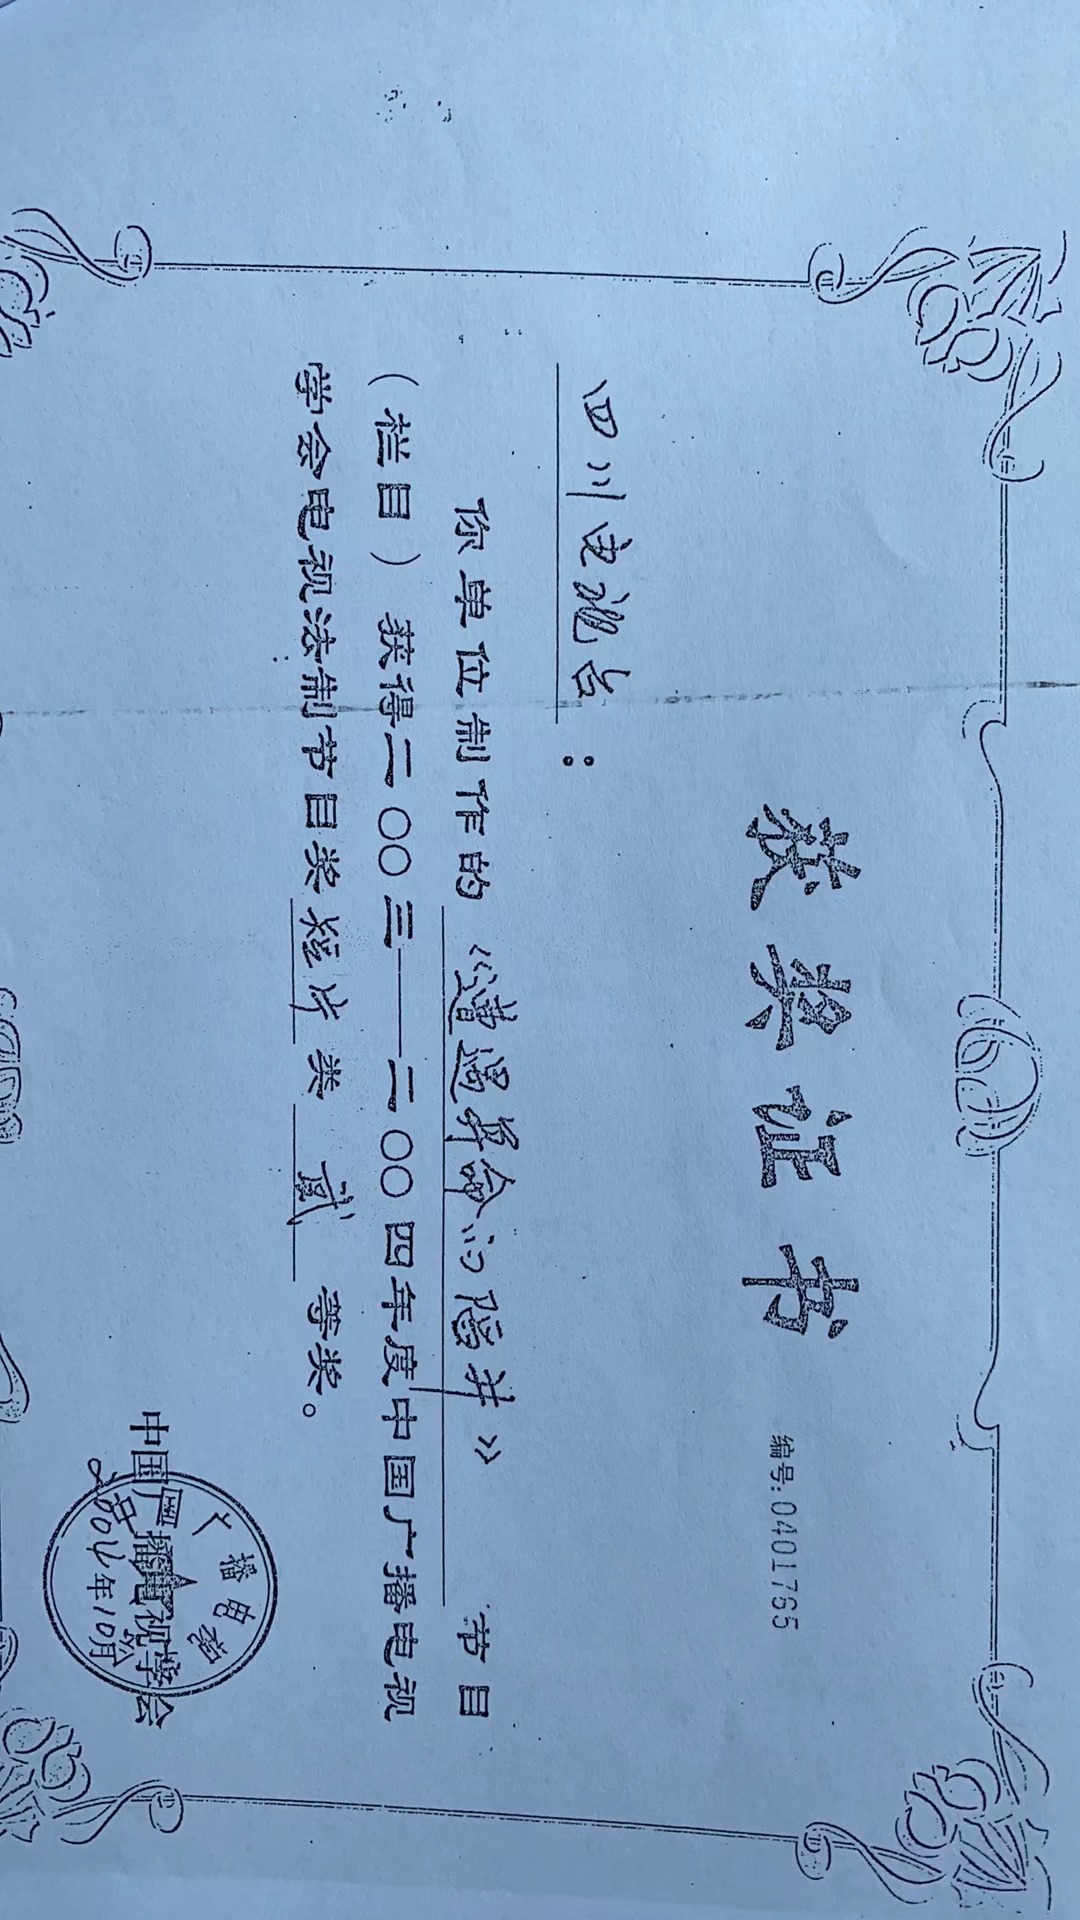 获奖证书
编号:0401765
四川电视台：
你单位制作的《遭遇算命的陷井》节目
（栏目）获得二〇〇三——二〇〇四年度中国广播电视
学会电视法制节目奖短片类贰等奖。
中国广播电视学会
2004年10月
广播电视